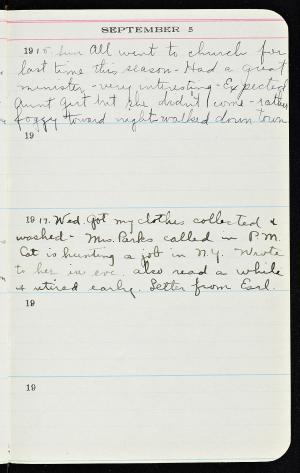 SEPTEMBER 5
1915. Sun All went to church for
last time this season - Had a great
minister - very interesting - Expected
Aunt Gert but she didn't come - rather
foggy toward night - walked down town
19
1917. Wed. Got my clothes collected &
washed - Mrs. Parks called in P.M.
Cat is hunting a job in N.Y. Wrote
to her in eve. also read a while
& retired early. Letter from Earl.
19
19